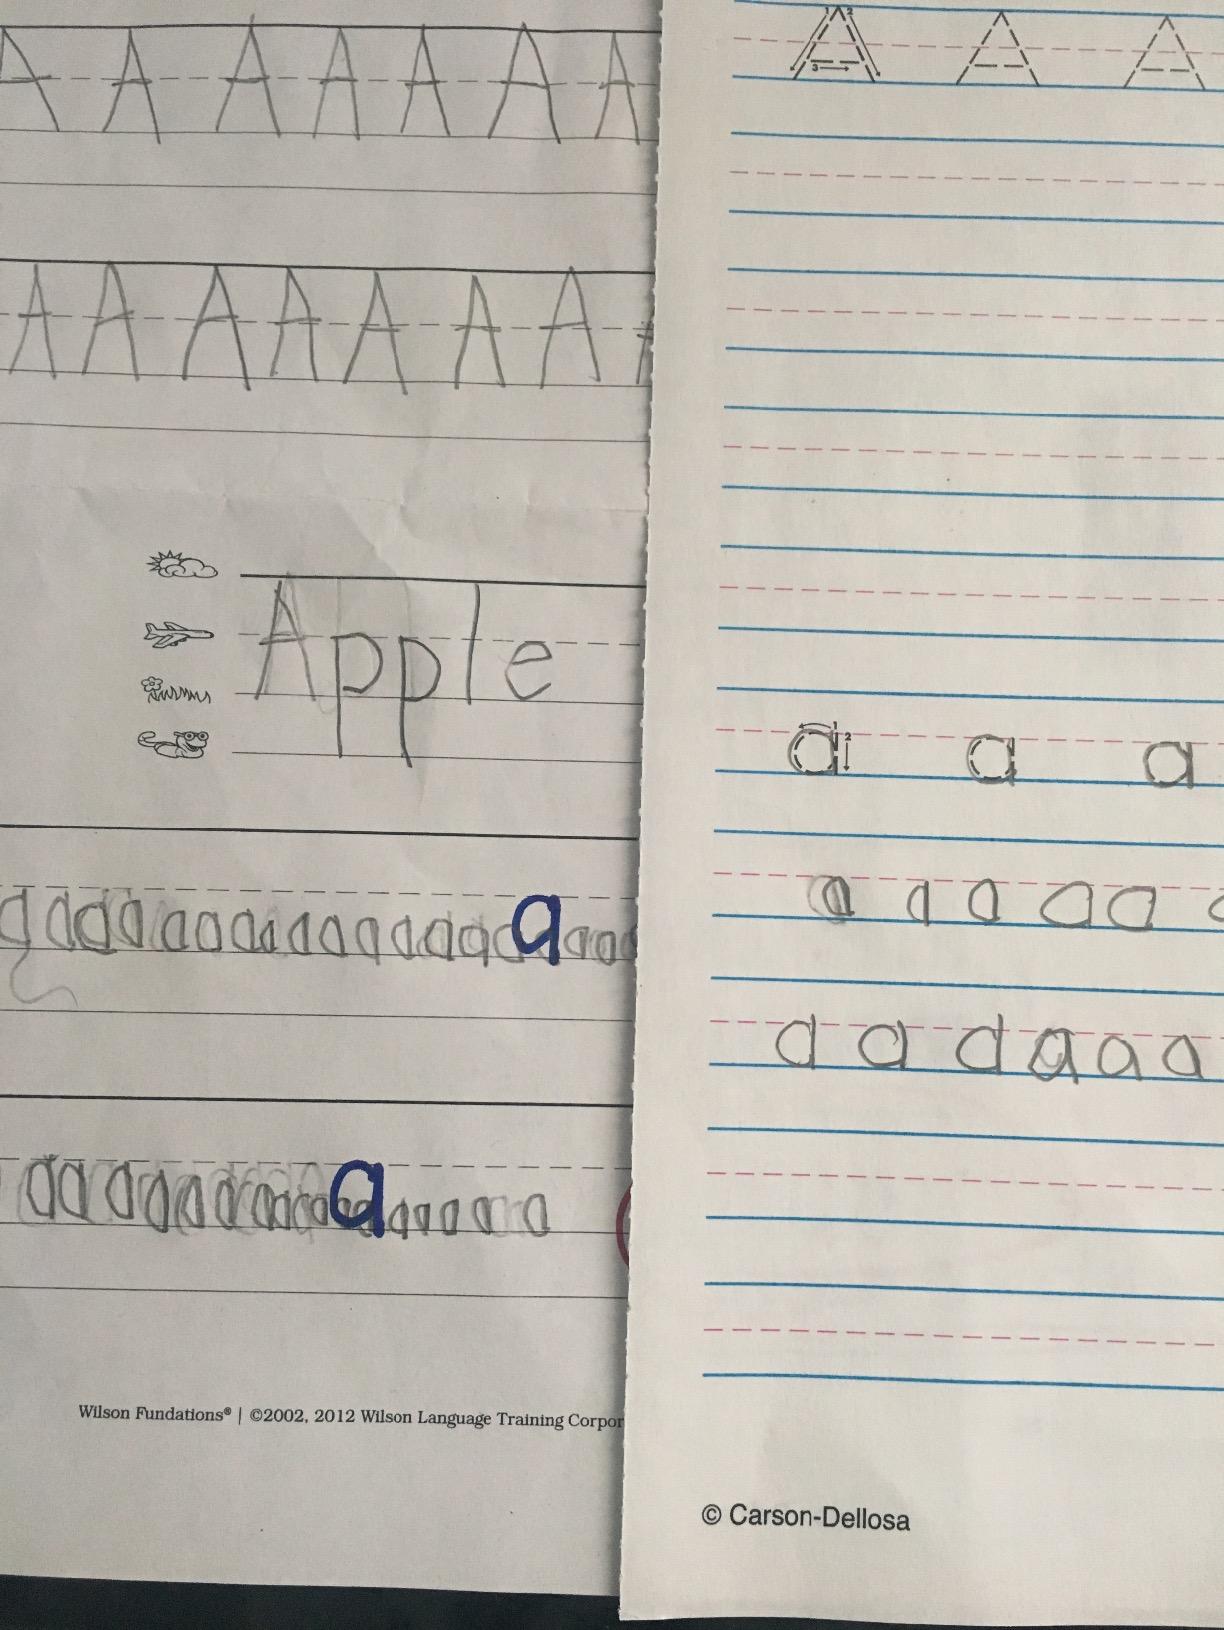 A A A A A A A
A A A A A A A
Apple
a a a a a a a a a a a a a a a a a a
a a a a a a a a a a a a a a a a a
Wilson Fundations® | ©2002, 2012 Wilson Language Training Corpor
1 2 3 A A A
1 2 a a a
a a a a a
a a a a a a
© Carson-Dellosa